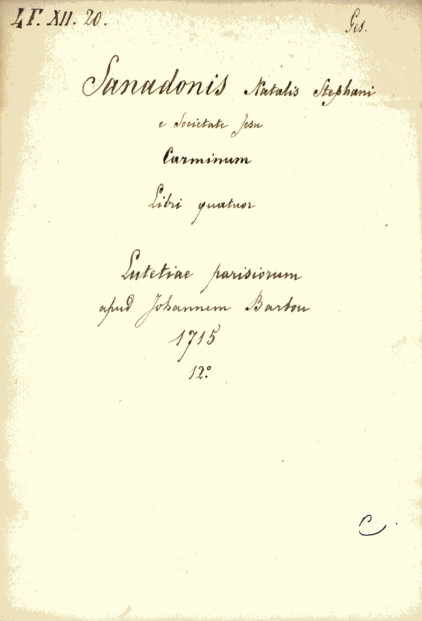 LF. XII. 20. Ges.
Sanadonis Natalis Stephani
e Societate Jesu
Carminum
Libri quatuor
Lutetiae parisiorum
apud Johannem Barbou
1715
12º
C.